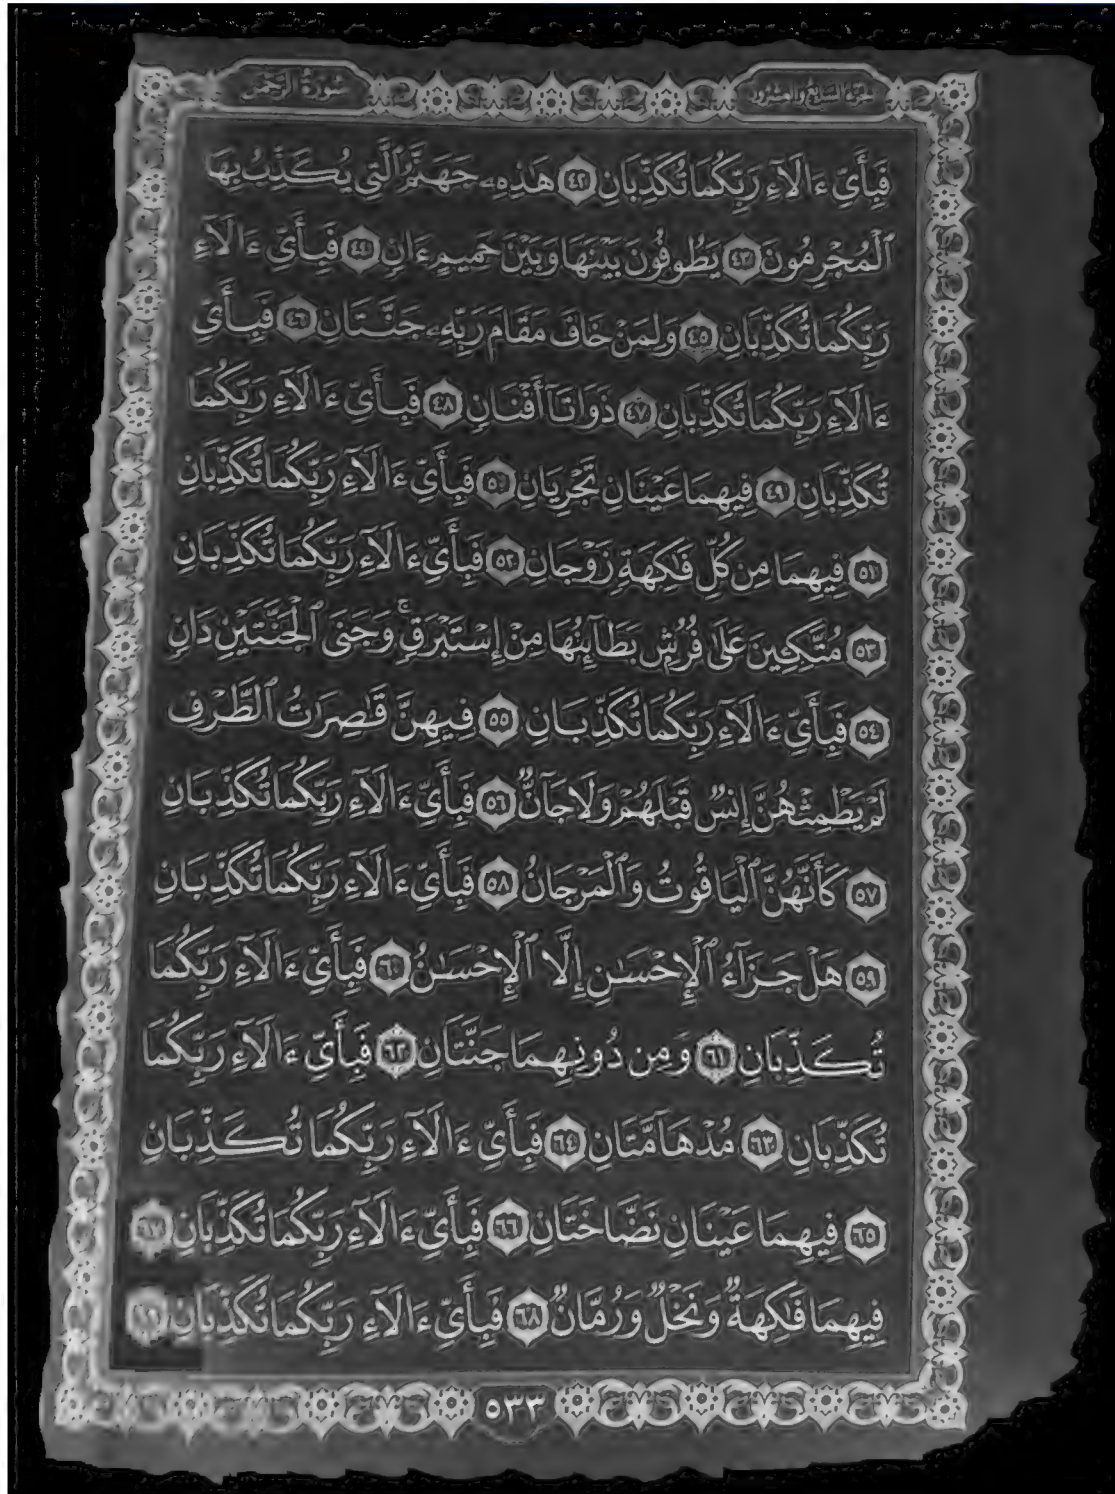 سُورَةُ الرَّحْمَٰن
الجزء السابع والعشرون
فَبِأَيِّ ءَالَآءِ رَبِّكُمَا تُكَذِّبَانِ ٤٢ هَٰذِهِۦ جَهَنَّمُ ٱلَّتِي يُكَذِّبُ بِهَا
ٱلْمُجْرِمُونَ ٤٣ يَطُوفُونَ بَيْنَهَا وَبَيْنَ حَمِيمٍ ءَانٍ ٤٤ فَبِأَيِّ ءَالَآءِ
رَبِّكُمَا تُكَذِّبَانِ ٤٥ وَلِمَنْ خَافَ مَقَامَ رَبِّهِۦ جَنَّتَانِ ٤٦ فَبِأَيِّ
ءَالَآءِ رَبِّكُمَا تُكَذِّبَانِ ٤٧ ذَوَاتَآ أَفْنَانٍ ٤٨ فَبِأَيِّ ءَالَآءِ رَبِّكُمَا
تُكَذِّبَانِ ٤٩ فِيهِمَا عَيْنَانِ تَجْرِيَانِ ٥٠ فَبِأَيِّ ءَالَآءِ رَبِّكُمَا تُكَذِّبَانِ
٥١ فِيهِمَا مِن كُلِّ فَٰكِهَةٍ زَوْجَانِ ٥٢ فَبِأَيِّ ءَالَآءِ رَبِّكُمَا تُكَذِّبَانِ
٥٣ مُتَّكِـِٔينَ عَلَىٰ فُرُشٍۭ بَطَآئِنُهَا مِنْ إِسْتَبْرَقٍۚ وَجَنَى ٱلْجَنَّتَيْنِ دَانٍ
٥٤ فَبِأَيِّ ءَالَآءِ رَبِّكُمَا تُكَذِّبَانِ ٥٥ فِيهِنَّ قَٰصِرَٰتُ ٱلطَّرْفِ
لَمْ يَطْمِثْهُنَّ إِنسٌ قَبْلَهُمْ وَلَا جَآنٌّ ٥٦ فَبِأَيِّ ءَالَآءِ رَبِّكُمَا تُكَذِّبَانِ
٥٧ كَأَنَّهُنَّ ٱلْيَاقُوتُ وَٱلْمَرْجَانُ ٥٨ فَبِأَيِّ ءَالَآءِ رَبِّكُمَا تُكَذِّبَانِ
٥٩ هَلْ جَزَآءُ ٱلْإِحْسَٰنِ إِلَّا ٱلْإِحْسَٰنُ ٦٠ فَبِأَيِّ ءَالَآءِ رَبِّكُمَا
تُكَذِّبَانِ ٦١ وَمِن دُونِهِمَا جَنَّتَانِ ٦٢ فَبِأَيِّ ءَالَآءِ رَبِّكُمَا
تُكَذِّبَانِ ٦٣ مُدْهَآمَّتَانِ ٦٤ فَبِأَيِّ ءَالَآءِ رَبِّكُمَا تُكَذِّبَانِ
٦٥ فِيهِمَا عَيْنَانِ نَضَّاخَتَانِ ٦٦ فَبِأَيِّ ءَالَآءِ رَبِّكُمَا تُكَذِّبَانِ ٦٧
فِيهِمَا فَٰكِهَةٌ وَنَخْلٌ وَرُمَّانٌ ٦٨ فَبِأَيِّ ءَالَآءِ رَبِّكُمَا تُكَذِّبَانِ ٦٩
٥٣٣